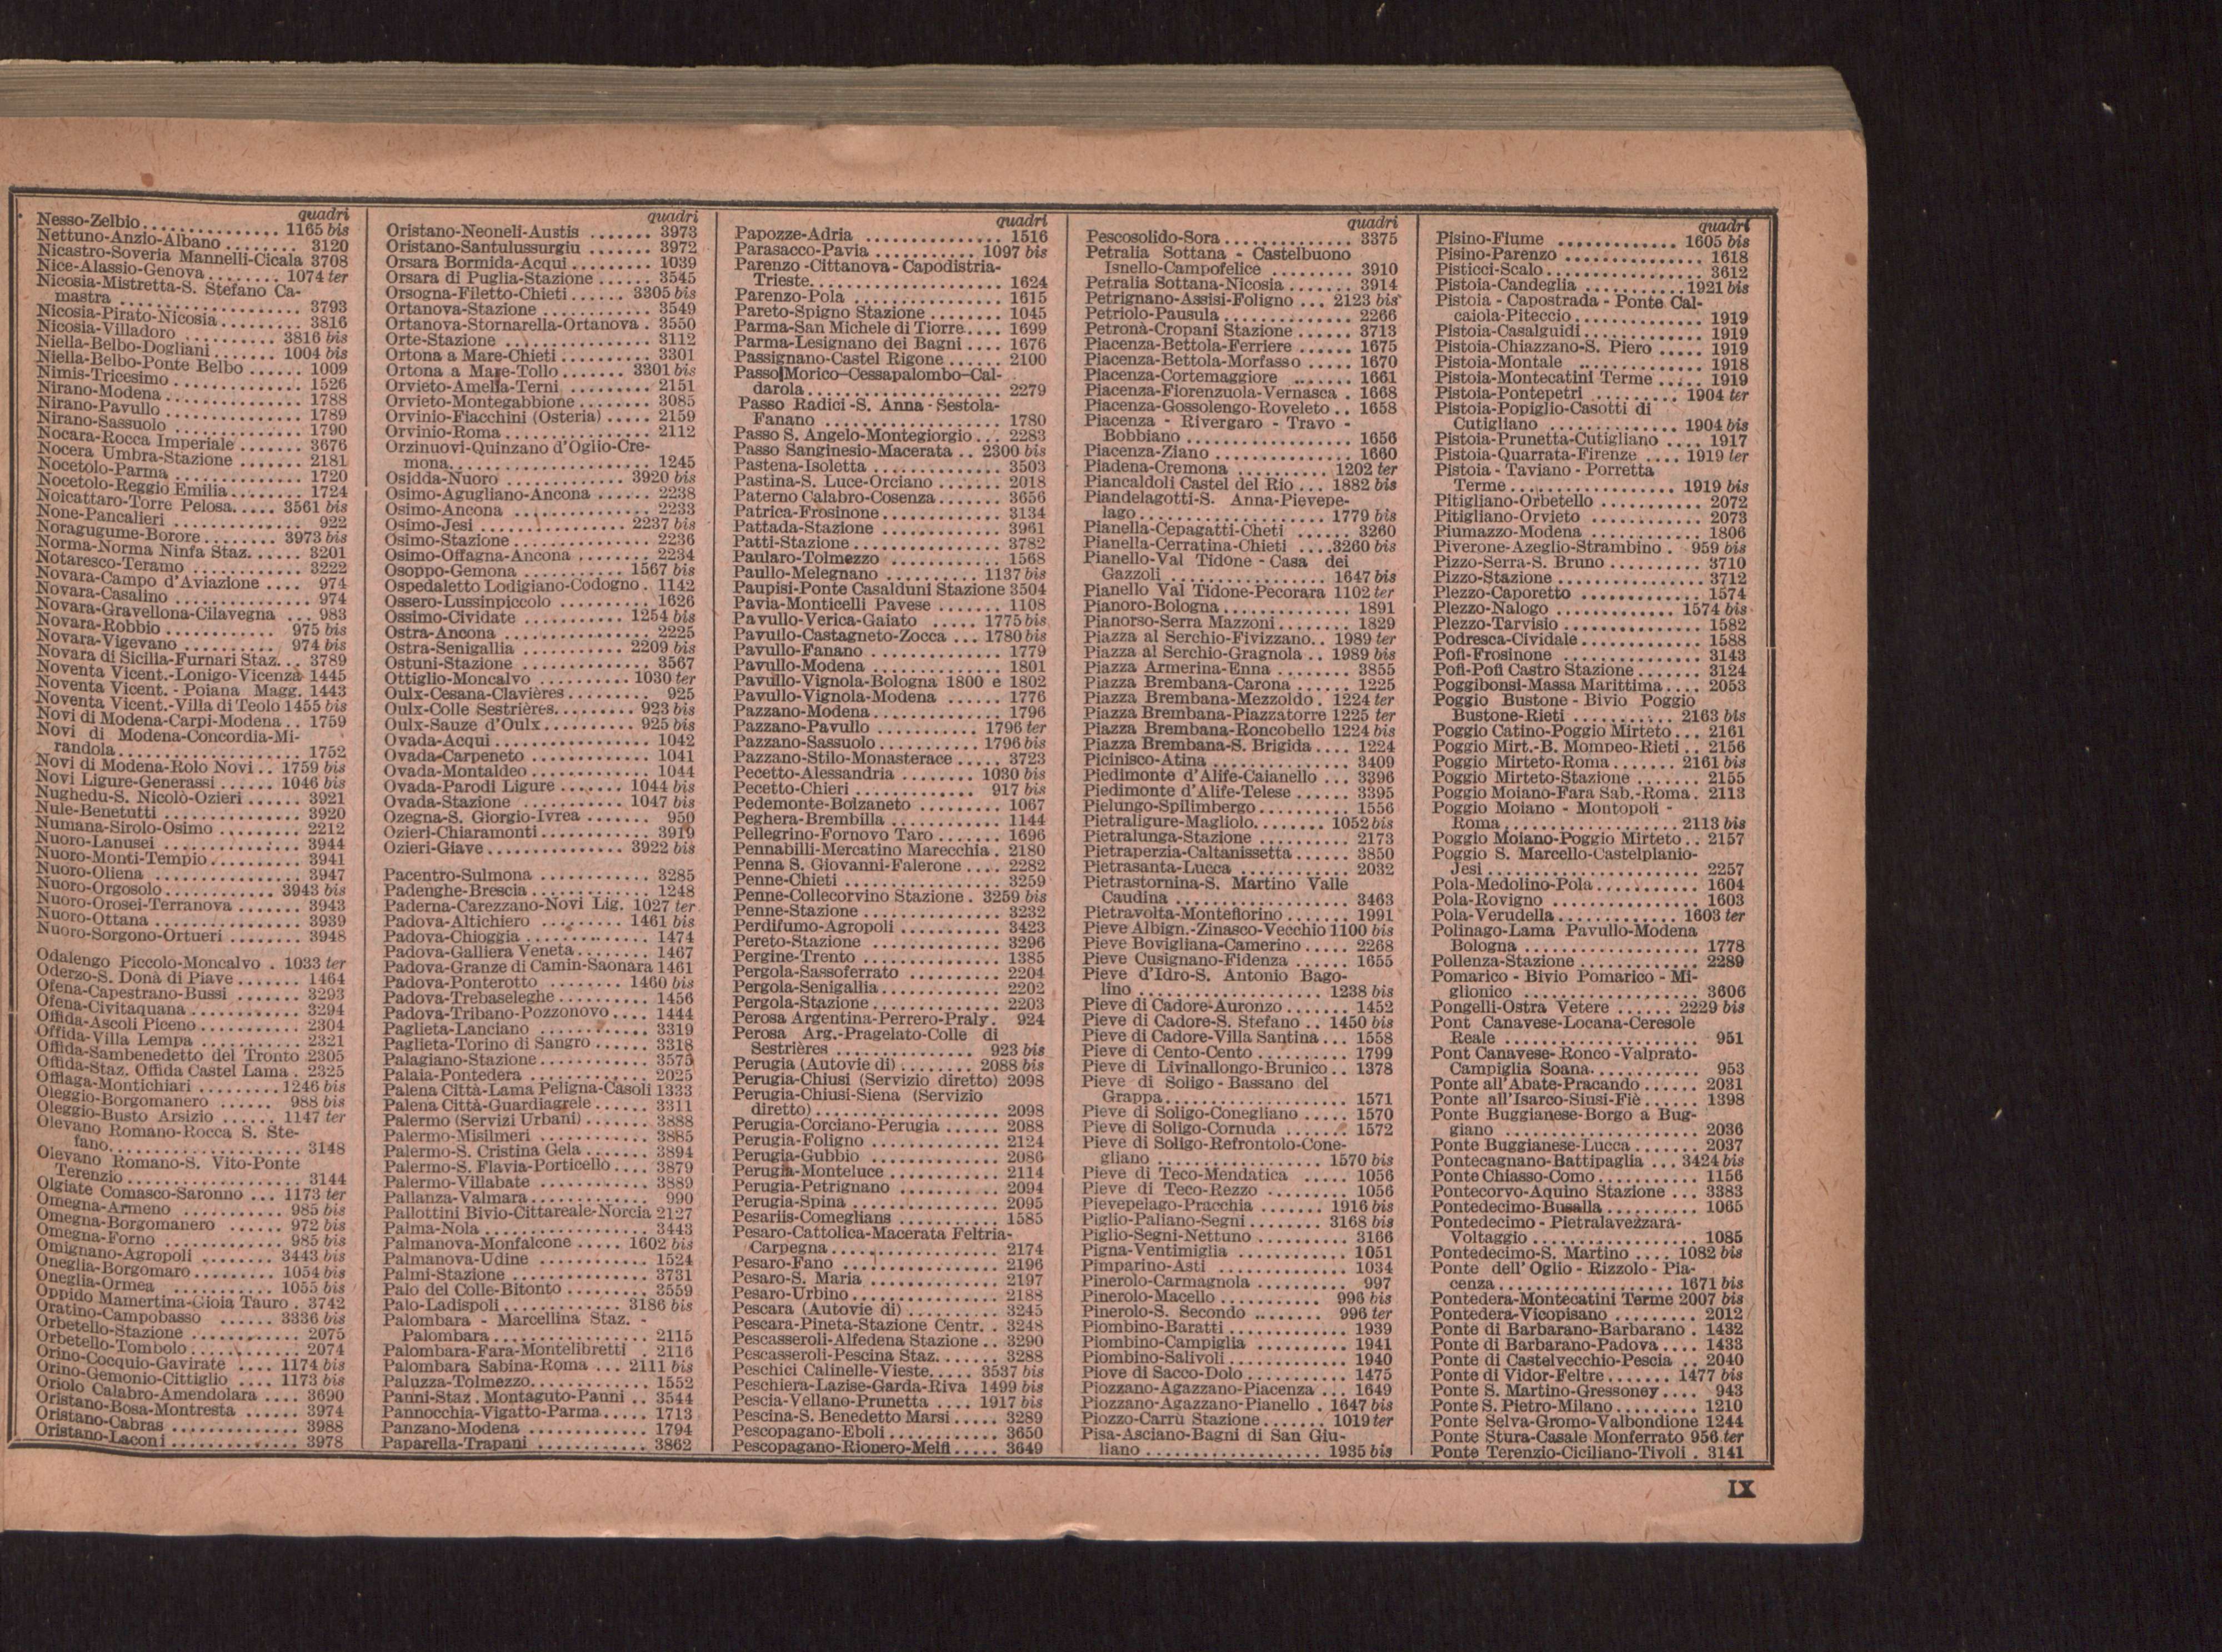 quadri
Nesso-Zelbio............... 1165 bis
Nettuno-Anzio-Albano ........ 3120
Nicastro-Soveria Mannelli-Cicala 3708
Nice-Alassio-Genova ........ 1074 ter
Nicosia-Mistretta-S. Stefano Ca-
mastra ..................... 3793
Nicosia-Pirato-Nicosia ......... 3816
Nicosia-Villadoro .......... 3816 bis
Niella-Belbo-Dogliani ....... 1004 bis
Niella-Belbo-Ponte Belbo ...... 1009
Nimis-Tricesimo ............. 1526
Nirano-Modena .............. 1788
Nirano-Pavullo .............. 1789
Nirano-Sassuolo ............. 1790
Nocara-Rocca Imperiale ....... 3676
Nocera Umbra-Stazione ....... 2181
Nocetolo-Parma ............. 1720
Nocetolo-Reggio Emilia ........ 1724
Noicattaro-Torre Pelosa..... 3561 bis
None-Pancalieri ............. 922
Noragugume-Borore ........ 3973 bis
Norma-Norma Ninfa Staz. ...... 3201
Notaresco-Teramo ............ 3222
Novara-Campo d'Aviazione .... 974
Novara-Casalino .............. 974
Novara-Gravellona-Cilavegna ... 983
Novara-Robbio ............ 975 bis
Novara-Vigevano .......... 974 bis
Novara di Sicilia-Furnari Staz. .. 3789
Noventa Vicent.-Lonigo-Vicenza 1445
Noventa Vicent. - Poiana Magg. 1443
Noventa Vicent.-Villa di Teolo 1455 bis
Novi di Modena-Carpi-Modena .. 1759
Novi di Modena-Concordia-Mi-
randola..................... 1752
Novi di Modena-Rolo Novi .. 1759 bis
Novi Ligure-Generassi ...... 1046 bis
Nughedu-S. Nicolò-Ozieri ...... 3921
Nule-Benetutti ............... 3920
Numana-Sirolo-Osimo ......... 2212
Nuoro-Lanusei ............... 3944
Nuoro-Monti-Tempio .......... 3941
Nuoro-Oliena ................ 3947
Nuoro-Orgosolo ............ 3943 bis
Nuoro-Orosei-Terranova ....... 3943
Nuoro-Ottana ................ 3939
Nuoro-Sorgono-Ortueri ........ 3948
Odalengo Piccolo-Moncalvo . 1033 ter
Oderzo-S. Donà di Piave ....... 1464
Ofena-Capestrano-Bussi ....... 3293
Ofena-Civitaquana ............ 3294
Offida-Ascoli Piceno ........... 2304
Offida-Villa Lempa ........... 2321
Offida-Sambenedetto del Tronto 2305
Offida-Staz. Offida Castel Lama . 2325
Offlaga-Montichiari ......... 1246 bis
Oleggio-Borgomanero ...... 988 bis
Oleggio-Busto Arsizio ...... 1147 ter
Olevano Romano-Rocca S. Ste-
fano....................... 3148
Olevano Romano-S. Vito-Ponte
Terenzio ................... 3144
Olgiate Comasco-Saronno ... 1173 ter
Omegna-Armeno ........... 985 bis
Omegna-Borgomanero ...... 972 bis
Omegna-Forno ............. 985 bis
Omignano-Agropoli ........ 3443 bis
Oneglia-Borgomaro ......... 1054 bis
Oneglia-Ormea ........... 1055 bis
Oppido Mamertina-Gioia Tauro . 3742
Oratino-Campobasso ...... 3336 bis
Orbetello-Stazione ............ 2075
Orbetello-Tombolo ............ 2074
Orino-Cocquio-Gavirate .... 1174 bis
Orino-Gemonio-Cittiglio .... 1173 bis
Oriolo Calabro-Amendolara .... 3690
Oristano-Bosa-Montresta ...... 3974
Oristano-Cabras .............. 3988
Oristano-Laconi .............. 3978
quadri
Oristano-Neoneli-Austis ....... 3973
Oristano-Santulussurgiu ....... 3972
Orsara Bormida-Acqui ......... 1039
Orsara di Puglia-Stazione ...... 3545
Orsogna-Filetto-Chieti ...... 3305 bis
Ortanova-Stazione ............ 3549
Ortanova-Stornarella-Ortanova . 3550
Orte-Stazione ................ 3112
Ortona a Mare-Chieti .......... 3301
Ortona a Mare-Tollo ....... 3301 bis
Orvieto-Amelia-Terni ......... 2151
Orvieto-Montegabbione ........ 3085
Orvinio-Fiacchini (Osteria) ..... 2159
Orvinio-Roma ................ 2112
Orzinuovi-Quinzano d'Oglio-Cre-
mona....................... 1245
Osidda-Nuoro ............. 3920 bis
Osimo-Agugliano-Ancona ...... 2238
Osimo-Ancona ............... 2233
Osimo-Jesi ................ 2237 bis
Osimo-Stazione ............... 2236
Osimo-Offagna-Ancona ........ 2234
Osoppo-Gemona ........... 1567 bis
Ospedaletto Lodigiano-Codogno . 1142
Ossero-Lussinpiccolo .......... 1626
Ossimo-Cividate ........... 1254 bis
Ostra-Ancona ................ 2225
Ostra-Senigallia ........... 2209 bis
Ostuni-Stazione .............. 3567
Ottiglio-Moncalvo .......... 1030 ter
Oulx-Cesana-Clavières ......... 925
Oulx-Colle Sestrières......... 923 bis
Oulx-Sauze d'Oulx ......... 925 bis
Ovada-Acqui ................. 1042
Ovada-Carpeneto ............. 1041
Ovada-Montaldeo ............. 1044
Ovada-Parodi Ligure ....... 1044 bis
Ovada-Stazione ........... 1047 bis
Ozegna-S. Giorgio-Ivrea ....... 950
Ozieri-Chiaramonti ............ 3919
Ozieri-Giave ............... 3922 bis
Pacentro-Sulmona ............ 3285
Padenghe-Brescia ............. 1248
Paderna-Carezzano-Novi Lig. 1027 ter
Padova-Altichiero .......... 1461 bis
Padova-Chioggia ............. 1474
Padova-Galliera Veneta ........ 1467
Padova-Granze di Camin-Saonara 1461
Padova-Ponterotto ......... 1460 bis
Padova-Trebaseleghe .......... 1456
Padova-Tribano-Pozzonovo .... 1444
Paglieta-Lanciano ............ 3319
Paglieta-Torino di Sangro ...... 3318
Palagiano-Stazione ............ 3575
Palaia-Pontedera ............. 2025
Palena Città-Lama Peligna-Casoli 1333
Palena Città-Guardiagrele ...... 3311
Palermo (Servizi Urbani) ....... 3888
Palermo-Misilmeri ............ 3885
Palermo-S. Cristina Gela ....... 3894
Palermo-S. Flavia-Porticello .... 3879
Palermo-Villabate ............ 3889
Pallanza-Valmara ............. 990
Pallottini Bivio-Cittareale-Norcia 2127
Palma-Nola .................. 3443
Palmanova-Monfalcone ..... 1602 bis
Palmanova-Udine ............. 1524
Palmi-Stazione ............... 3731
Palo del Colle-Bitonto ......... 3559
Palo-Ladispoli ............. 3186 bis
Palombara - Marcellina Staz. -
Palombara ................. 2115
Palombara-Fara-Montelibretti . 2116
Palombara Sabina-Roma ... 2111 bis
Paluzza-Tolmezzo............. 1552
Panni-Staz . Montaguto-Panni .. 3544
Pannocchia-Vigatto-Parma ..... 1713
Panzano-Modena ............. 1794
Paparella-Trapani ............ 3862
quadri
Papozze-Adria ............... 1516
Parasacco-Pavia ........... 1097 bis
Parenzo -Cittanova - Capodistria-
Trieste...................... 1624
Parenzo-Pola ................ 1615
Pareto-Spigno Stazione ........ 1045
Parma-San Michele di Tiorre .... 1699
Parma-Lesignano dei Bagni .... 1676
Passignano-Castel Rigone ...... 2100
Passo Morico-Cessapalombo-Cal-
darola ..................... 2279
Passo Radici -S. Anna - Sestola-
Fanano .................... 1780
Passo S. Angelo-Montegiorgio ... 2283
Passo Sanginesio-Macerata .. 2300 bis
Pastena-Isoletta .............. 3503
Pastina-S. Luce-Orciano ....... 2018
Paterno Calabro-Cosenza ....... 3656
Patrica-Frosinone ............. 3134
Pattada-Stazione ............. 3961
Patti-Stazione ................ 3782
Paularo-Tolmezzo ............ 1568
Paullo-Melegnano .......... 1137 bis
Paupisi-Ponte Casalduni Stazione 3504
Pavia-Monticelli Pavese ....... 1108
Pavullo-Verica-Gaiato ..... 1775 bis
Pavullo-Castagneto-Zocca ... 1780 bis
Pavullo-Fanano .............. 1779
Pavullo-Modena .............. 1801
Pavullo-Vignola-Bologna 1800 e 1802
Pavullo-Vignola-Modena ....... 1776
Pazzano-Modena ............. 1796
Pazzano-Pavullo ........... 1796 ter
Pazzano-Sassuolo .......... 1796 bis
Pazzano-Stilo-Monasterace ..... 3723
Pecetto-Alessandria ........ 1030 bis
Pecetto-Chieri ............. 917 bis
Pedemonte-Bolzaneto ......... 1067
Peghera-Brembilla ............ 1144
Pellegrino-Fornovo Taro ....... 1696
Pennabilli-Mercatino Marecchia . 2180
Penna S. Giovanni-Falerone .... 2282
Penne-Chieti ................. 3259
Penne-Collecorvino Stazione . 3259 bis
Penne-Stazione .............. 3232
Perdifumo-Agropoli ........... 3423
Pereto-Stazione .............. 3296
Pergine-Trento ............... 1385
Pergola-Sassoferrato .......... 2204
Pergola-Senigallia ............ 2202
Pergola-Stazione .............. 2203
Perosa Argentina-Perrero-Praly . 924
Perosa Arg.-Pragelato-Colle di
Sestrières ............... 923 bis
Perugia (Autovie di) ........ 2088 bis
Perugia-Chiusi (Servizio diretto) 2098
Perugia-Chiusi-Siena (Servizio
diretto) .................... 2098
Perugia-Corciano-Perugia ...... 2088
Perugia-Foligno .............. 2124
Perugia-Gubbio .............. 2086
Perugia-Monteluce ............ 2114
Perugia-Petrignano ........... 2094
Perugia-Spina ................ 2095
Pesariis-Comeglians ........... 1585
Pesaro-Cattolica-Macerata Feltria-
Carpegna .................. 2174
Pesaro-Fano ................. 2196
Pesaro-S. Maria .............. 2197
Pesaro-Urbino ................ 2188
Pescara (Autovie di) .......... 3245
Pescara-Pineta-Stazione Centr. . 3248
Pescasseroli-Alfedena Stazione .. 3290
Pescasseroli-Pescina Staz. ...... 3288
Peschici Calinelle-Vieste..... 3537 bis
Peschiera-Lazise-Garda-Riva 1499 bis
Pescia-Vellano-Prunetta .... 1917 bis
Pescina-S. Benedetto Marsi ..... 3289
Pescopagano-Eboli ............ 3650
Pescopagano-Rionero-Melfi ..... 3649
quadri
Pescosolido-Sora .............. 3375
Petralia Sottana - Castelbuono
Isnello-Campofelice ......... 3910
Petralia Sottana-Nicosia ....... 3914
Petrignano-Assisi-Foligno ... 2123 bis
Petriolo-Pausula .............. 2266
Petronà-Cropani Stazione ...... 3713
Piacenza-Bettola-Ferriere ...... 1675
Piacenza-Bettola-Morfasso ..... 1670
Piacenza-Cortemaggiore ....... 1661
Piacenza-Fiorenzuola-Vernasca . 1668
Piacenza-Gossolengo-Roveleto .. 1658
Piacenza - Rivergaro - Travo -
Bobbiano .................. 1656
Piacenza-Ziano ............... 1660
Piadena-Cremona .......... 1202 ter
Piancaldoli Castel del Rio ... 1882 bis
Piandelagotti-S. Anna-Pievepe-
lago ..................... 1779 bis
Pianella-Cepagatti-Cheti ...... 3260
Pianella-Cerratina-Chieti ....3260 bis
Pianello-Val Tidone - Casa dei
Gazzoli ................. 1647 bis
Pianello Val Tidone-Pecorara 1102 ter
Pianoro-Bologna .............. 1891
Pianorso-Serra Mazzoni ........ 1829
Piazza al Serchio-Fivizzano.. 1989 ter
Piazza al Serchio-Gragnola .. 1989 bis
Piazza Armerina-Enna ........ 3855
Piazza Brembana-Carona ...... 1225
Piazza Brembana-Mezzoldo . 1224 ter
Piazza Brembana-Piazzatorre 1225 ter
Piazza Brembana-Roncobello 1224 bis
Piazza Brembana-S. Brigida .... 1224
Picinisco-Atina ............... 3409
Piedimonte d'Alife-Caianello ... 3396
Piedimonte d'Alife-Telese ...... 3395
Pielungo-Spilimbergo .......... 1556
Pietraligure-Magliolo........ 1052 bis
Pietralunga-Stazione .......... 2173
Pietraperzia-Caltanissetta ...... 3850
Pietrasanta-Lucca ............ 2032
Pietrastornina-S. Martino Valle
Caudina ................... 3463
Pietravolta-Montefiorino ....... 1991
Pieve Albign.-Zinasco-Vecchio 1100 bis
Pieve Bovigliana-Camerino ..... 2268
Pieve Cusignano-Fidenza ...... 1655
Pieve d'Idro-S. Antonio Bago-
lino ..................... 1238 bis
Pieve di Cadore-Auronzo ....... 1452
Pieve di Cadore-S. Stefano .. 1450 bis
Pieve di Cadore-Villa Santina ... 1558
Pieve di Cento-Cento .......... 1799
Pieve di Livinallongo-Brunico .. 1378
Pieve di Soligo - Bassano del
Grappa ..................... 1571
Pieve di Soligo-Conegliano ..... 1570
Pieve di Soligo-Cornuda ....... 1572
Pieve di Soligo-Refrontolo-Cone-
gliano .................. 1570 bis
Pieve di Teco-Mendatica ..... 1056
Pieve di Teco-Rezzo ........ 1056
Pievepelago-Pracchia ....... 1916 bis
Piglio-Paliano-Segni ........ 3168 bis
Piglio-Segni-Nettuno .......... 3166
Pigna-Ventimiglia ............ 1051
Pimparino-Asti ............... 1034
Pinerolo-Carmagnola .......... 997
Pinerolo-Macello ........... 996 bis
Pinerolo-S. Secondo ........ 996 ter
Piombino-Baratti ............. 1939
Piombino-Campiglia ........... 1941
Piombino-Salivoli ............. 1940
Piove di Sacco-Dolo ........... 1475
Piozzano-Agazzano-Piacenza ... 1649
Piozzano-Agazzano-Pianello . 1647 bis
Piozzo-Carrù Stazione ....... 1019 ter
Pisa-Asciano-Bagni di San Giu-
liano .................... 1935 bis
quadri
Pisino-Fiume ............. 1605 bis
Pisino-Parenzo ............... 1618
Pisticci-Scalo ................. 3612
Pistoia-Candeglia ........... 1921 bis
Pistoia - Capostrada - Ponte Cal-
caiola-Piteccio .............. 1919
Pistoia-Casalguidi ............. 1919
Pistoia-Chiazzano-S. Piero ..... 1919
Pistoia-Montale .............. 1918
Pistoia-Montecatini Terme ..... 1919
Pistoia-Pontepetri ......... 1904 ter
Pistoia-Popiglio-Casotti di
Cutigliano .............. 1904 bis
Pistoia-Prunetta-Cutigliano .... 1917
Pistoia-Quarrata-Firenze .... 1919 ter
Pistoia - Taviano - Porretta
Terme ................... 1919 bis
Pitigliano-Orbetello ........... 2072
Pitigliano-Orvieto ............ 2073
Piumazzo-Modena ............ 1806
Piverone-Azeglio-Strambino . 959 bis
Pizzo-Serra-S. Bruno .......... 3710
Pizzo-Stazione ............... 3712
Plezzo-Caporetto ............. 1574
Plezzo-Nalogo ............. 1574 bis
Plezzo-Tarvisio ............... 1582
Podresca-Cividale ............. 1588
Pofi-Frosinone ............... 3143
Pofi-Pofi Castro Stazione ....... 3124
Poggibonsi-Massa Marittima .... 2053
Poggio Bustone - Bivio Poggio
Bustone-Rieti ........... 2163 bis
Poggio Catino-Poggio Mirteto ... 2161
Poggio Mirt.-B. Mompeo-Rieti .. 2156
Poggio Mirteto-Roma ....... 2161 bis
Poggio Mirteto-Stazione ....... 2155
Poggio Moiano-Fara Sab.-Roma . 2113
Poggio Moiano - Montopoli -
Roma ................... 2113 bis
Poggio Moiano-Poggio Mirteto .. 2157
Poggio S. Marcello-Castelplanio-
Jesi ....................... 2257
Pola-Medolino-Pola ........... 1604
Pola-Rovigno ................ 1603
Pola-Verudella ............. 1603 ter
Polinago-Lama Pavullo-Modena
Bologna ................... 1778
Pollenza-Stazione ............. 2289
Pomarico - Bivio Pomarico - Mi-
glionico ................... 3606
Pongelli-Ostra Vetere ...... 2229 bis
Pont Canavese-Locana-Ceresole
Reale ..................... 951
Pont Canavese- Ronco -Valprato-
Campiglia Soana. ........... 953
Ponte all'Abate-Pracando ...... 2031
Ponte all'Isarco-Siusi-Fiè ...... 1398
Ponte Buggianese-Borgo a Bug-
giano ..................... 2036
Ponte Buggianese-Lucca ....... 2037
Pontecagnano-Battipaglia ... 3424 bis
Ponte Chiasso-Como ........... 1156
Pontecorvo-Aquino Stazione ... 3383
Pontedecimo-Busalla .......... 1065
Pontedecimo - Pietralavezzara-
Voltaggio .................. 1085
Pontedecimo-S. Martino .... 1082 bis
Ponte dell' Oglio - Rizzolo - Pia-
cenza .................... 1671 bis
Pontedera-Montecatini Terme 2007 bis
Pontedera-Vicopisano ......... 2012
Ponte di Barbarano-Barbarano . 1432
Ponte di Barbarano-Padova .... 1433
Ponte di Castelvecchio-Pescia .. 2040
Ponte di Vidor-Feltre ....... 1477 bis
Ponte S. Martino-Gressoney .... 943
Ponte S. Pietro-Milano ........ 1210
Ponte Selva-Gromo-Valbondione 1244
Ponte Stura-Casale Monferrato 956 ter
Ponte Terenzio-Ciciliano-Tivoli . 3141
IX